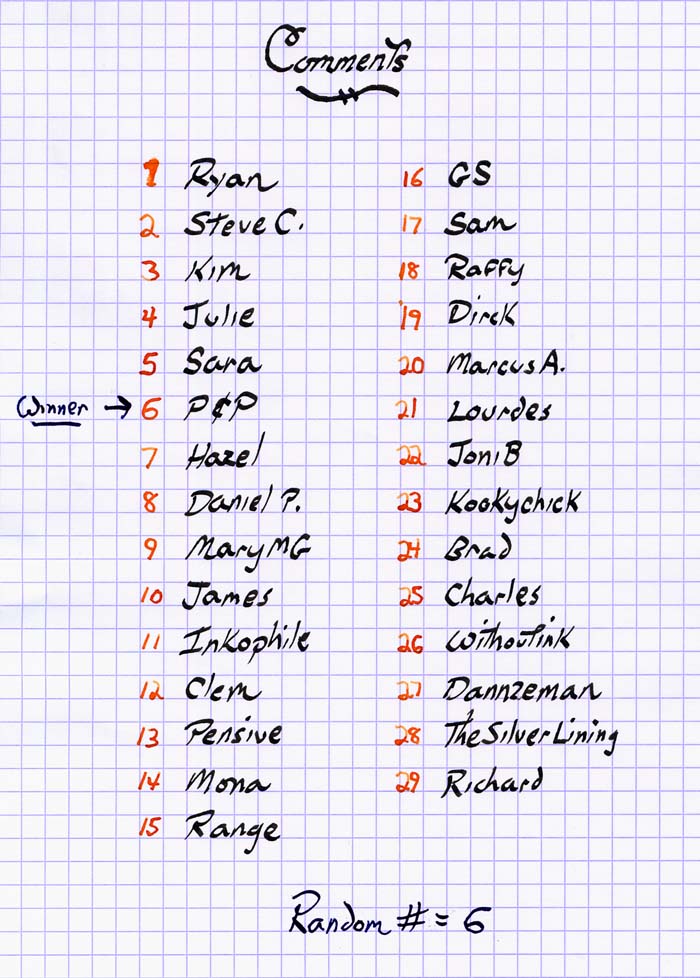 Comments
1 Ryan
2 Steve C.
3 Kim
4 Julie
5 Sara
Winner → 6 P&P
7 Hazel
8 Daniel P.
9 MaryMG
10 James
11 Inkophile
12 Clem
13 Pensive
14 Mona
15 Range
16 GS
17 Sam
18 Raffy
19 Dirck
20 Marcus A.
21 Lourdes
22 Joni B
23 Kookychick
24 Brad
25 Charles
26 Withoutink
27 Dannzeman
28 TheSilverLining
29 Richard
Random # = 6